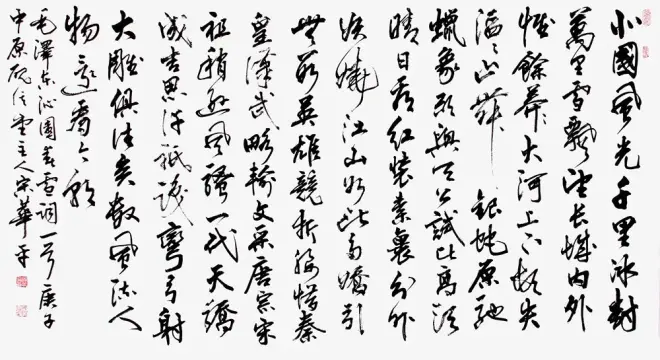 北國風光千里冰封
萬里雪飄望長城内外
惟餘莽々大河上下頓失
滔々山舞銀蛇原馳
蠟象欲與天公試比高須
晴日看紅裝素裹分外
妖嬈江山如此多嬌引
無數英雄競折腰惜秦
皇漢武略輸文采唐宗宋
祖稍遜風騷一代天驕
成吉思汗祗識彎弓射
大雕俱往矣數風流人
物還看今朝
毛澤東沁園春雪詞一首庚子
中原堂主人宋華平